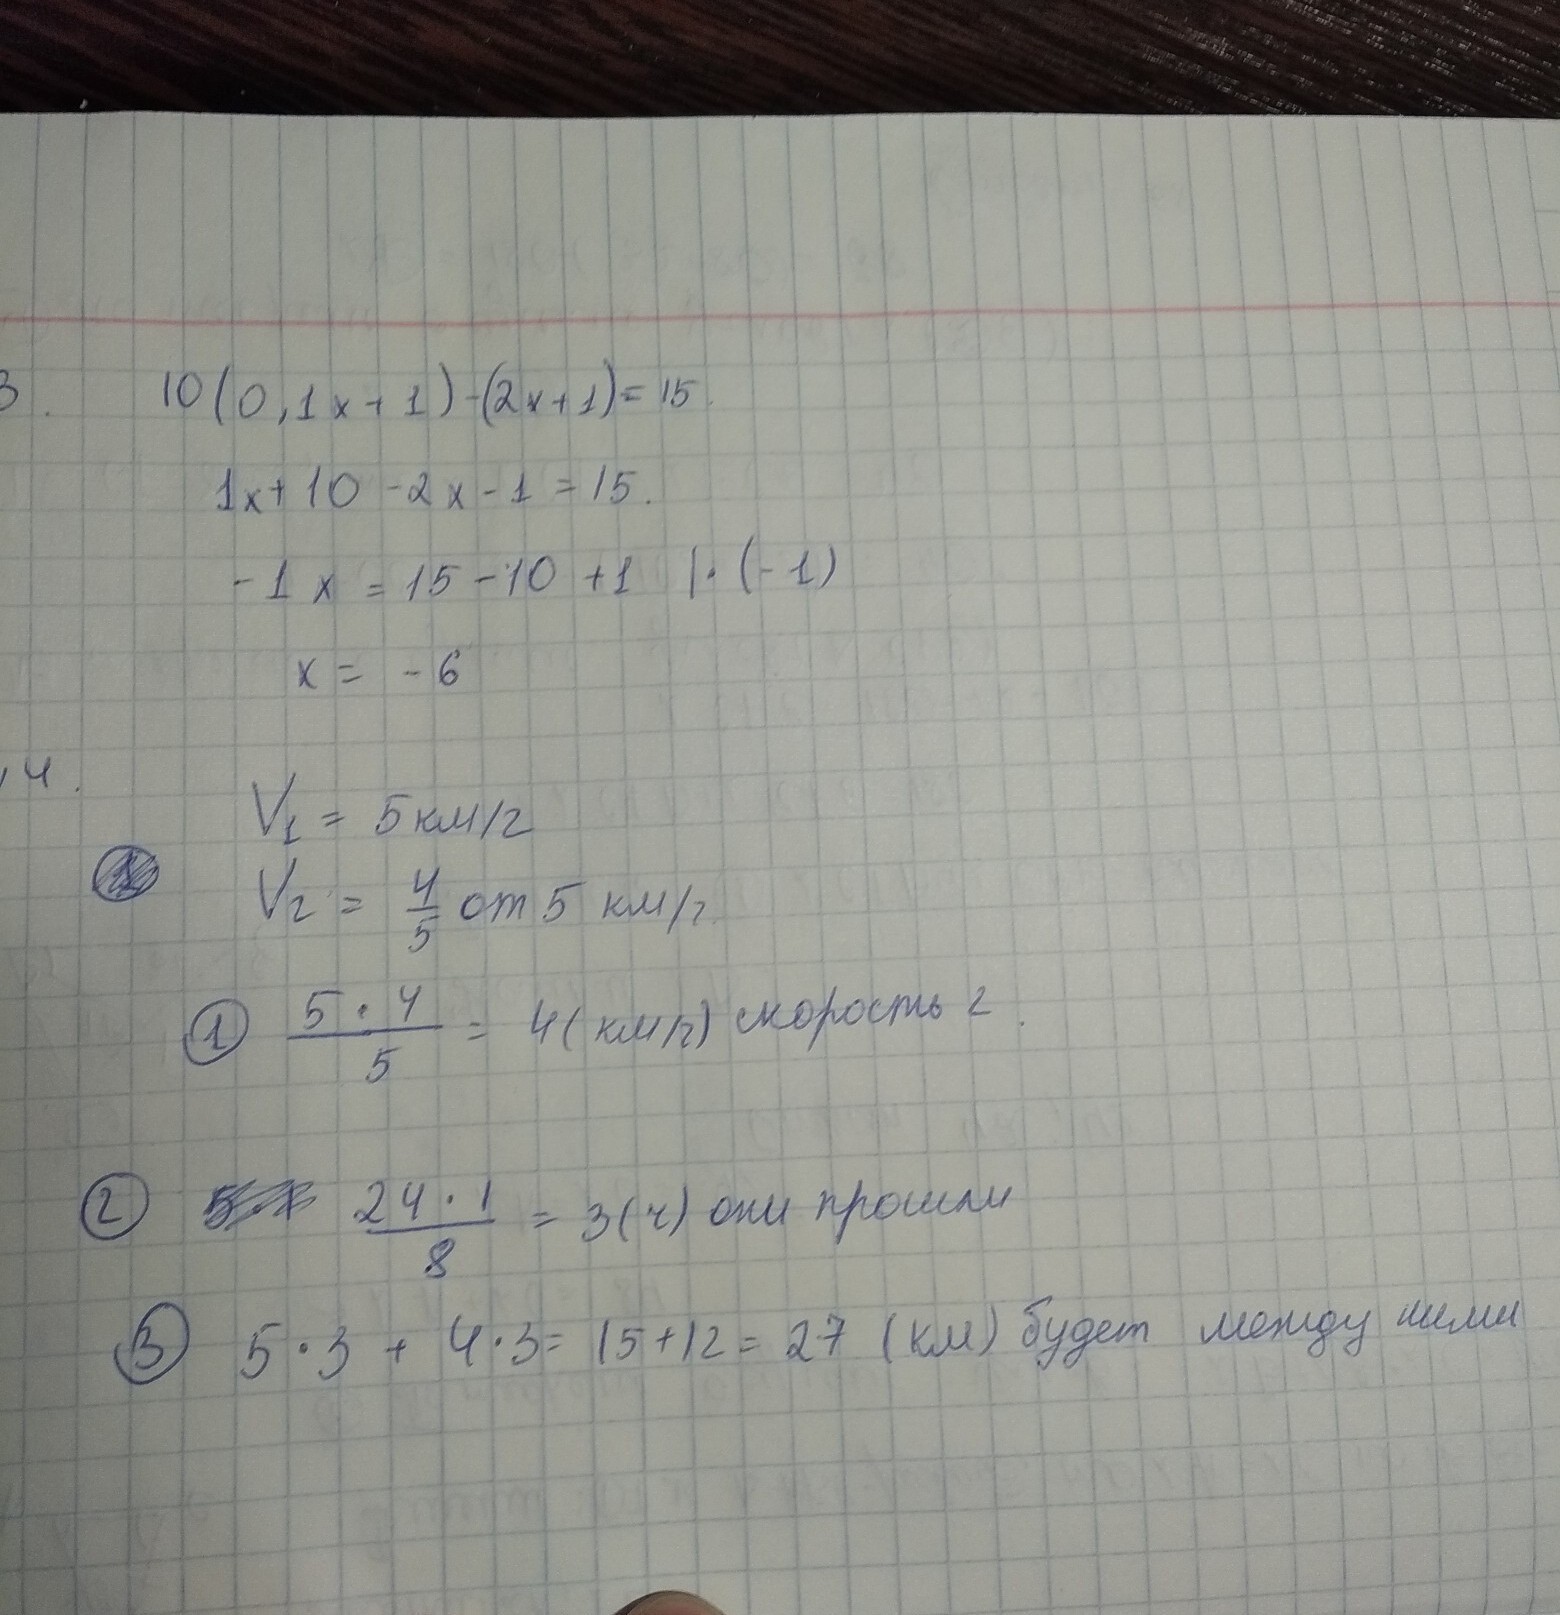 3. 10(0,1x+1)-(2x+1)=15.
1x+10-2x-1=15.
-1x=15-10+1 |·(-1)
x=-6
4.
V₁ = 5 км/г
V₂ = 4/5 от 5 км/г.
① 5·4/5 = 4(км/г) скорость 2.
② 24·1/8 = 3(ч) они прошли
③ 5·3 + 4·3 = 15+12 = 27 (км) будет между ними